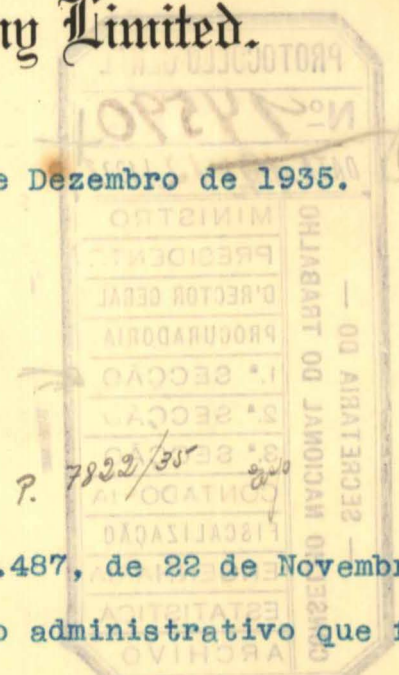 ny Limited.
PROTOCOLLO GERAL
Nº 14590
DATA
e Dezembro de 1935.
MINISTRO
PRESIDENTE
D'RECTOR GERAL
PROCURADORIA
1.ª SECCÃO
2.ª SECCÃO
3.ª SECCÃO
CONTADORIA
FISCALIZAÇÃO
ESTATISTICA
ARCHIVO
CONSELHO NACIONAL DO TRABALHO
— SECRETARIA DO —
P. 7822/35
.487, de 22 de Novembr
o administrativo que